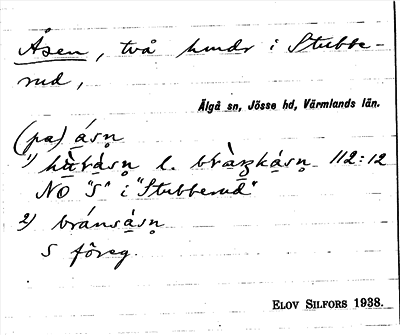 Åsen, två hmdr i Stubbe-
rud,
Älgå sn, Jösse hd, Värmlands län.
(pa) ásn̥
1) hùtásn̥ l. bràʒkásn̥ 112:12
NO "S" i "Stubberud"
2) bránsásn̥
S föreg.
ELOV SILFORS 1938.